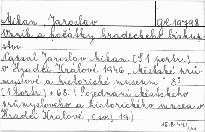 Mikan, Jaroslav
Vznik a počátky hradeckého biskup-
ství.
Napsal Jaroslav Mikan. (S 1 portr.)
V Hradci Králové 1946, Městské prů-
myslové a historické museum. 8°.
Pojednání Městského
průmyslového a historického musea v
Hradci Králové, (sv. 19.)